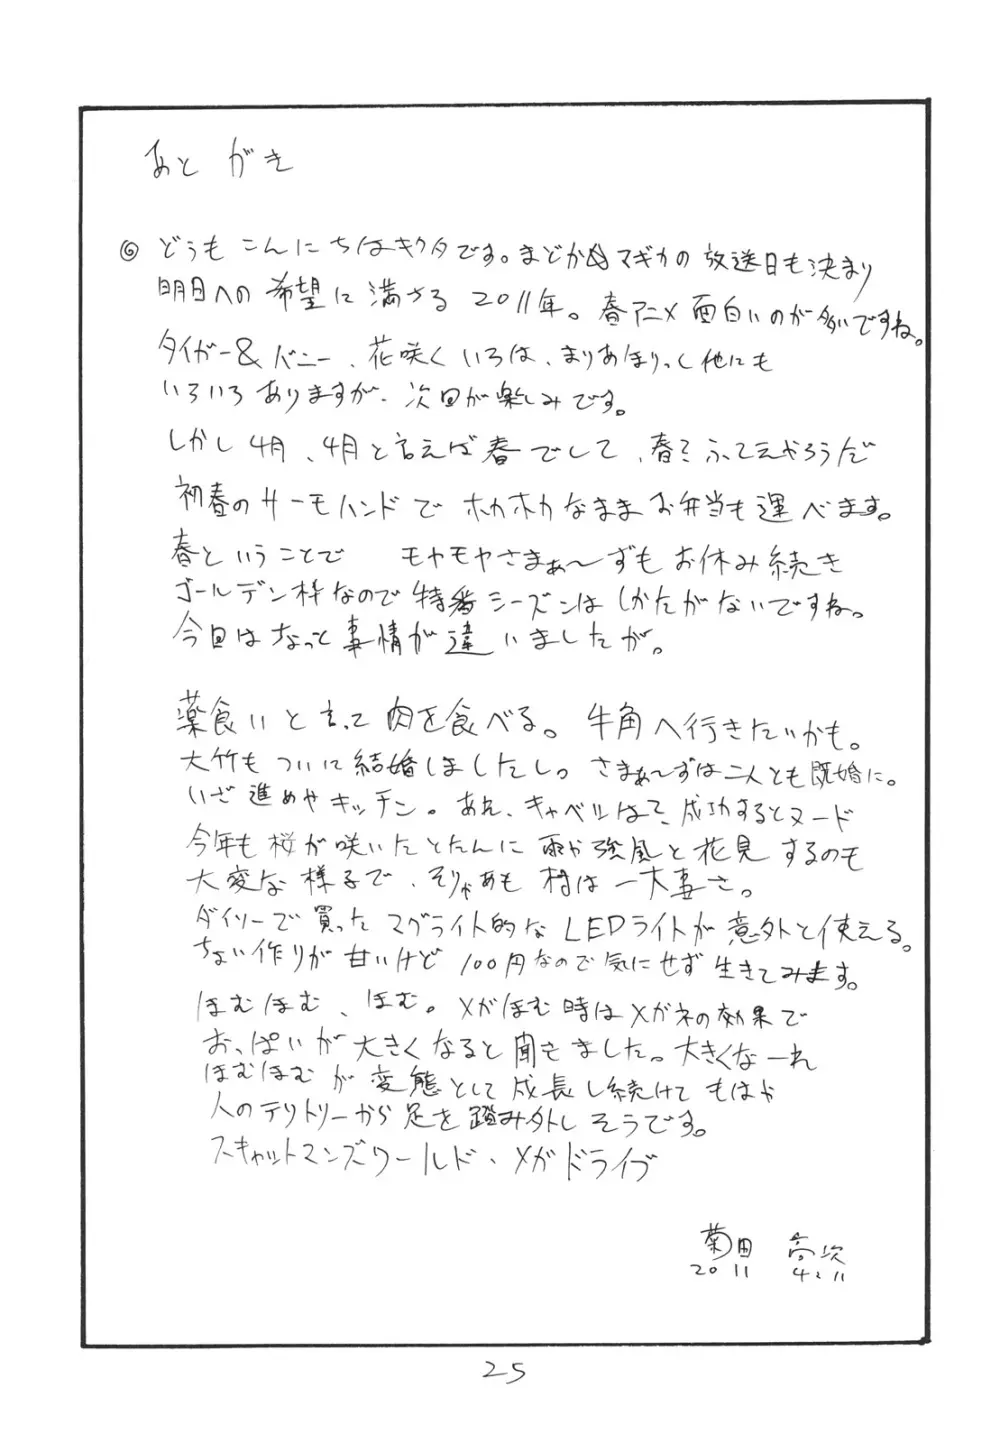 あとがき
◎ どうも こんにちはキクタです。まどか☆マギカの放送日も決まり
明日への希望に満ちる 2011年。春アニメ面白いのが多いですね。
タイガー&バニー、花咲くいろは、まりあほりっく他にも
いろいろありますが、次回が楽しみです。
しかし4月、4月と言えば春でして、春
初春のサーモハンドでホカホカなままお弁当も運べます。
春ということで モヤモヤさまぁ〜ずもお休み続き
ゴールデン枠なので特番シーズンはしかたがないですね。
今回はちょっと事情が違いましたが。
薬食いと言って肉を食べる。牛角へ行きたいかも。
大竹もついに結婚しましたし。さまぁ〜ずは二人とも既婚に。
いざ進めやキッチン。あれ、キャベツはて、成功するとヌード
今年も桜が咲いたとたんに雨や強風と花見するのも
大変な様子で、そりゃあも村は一大事さ。
ダイソーで買ったマグライト的なLEDライトが意外と使える。
ちょい作りが甘いけど100円なので気にせず生きてみます。
ほむほむ、ほむ。メがほむ時はメガネの効果で
おっぱいが大きくなると聞きました。大きくなーれ
ほむほむが変態として成長し続けてもはや
人のテリトリーから足を踏み外しそうです。
スキャットマンズワールド・メガドライブ
菊田 高次
2011 4.11
25